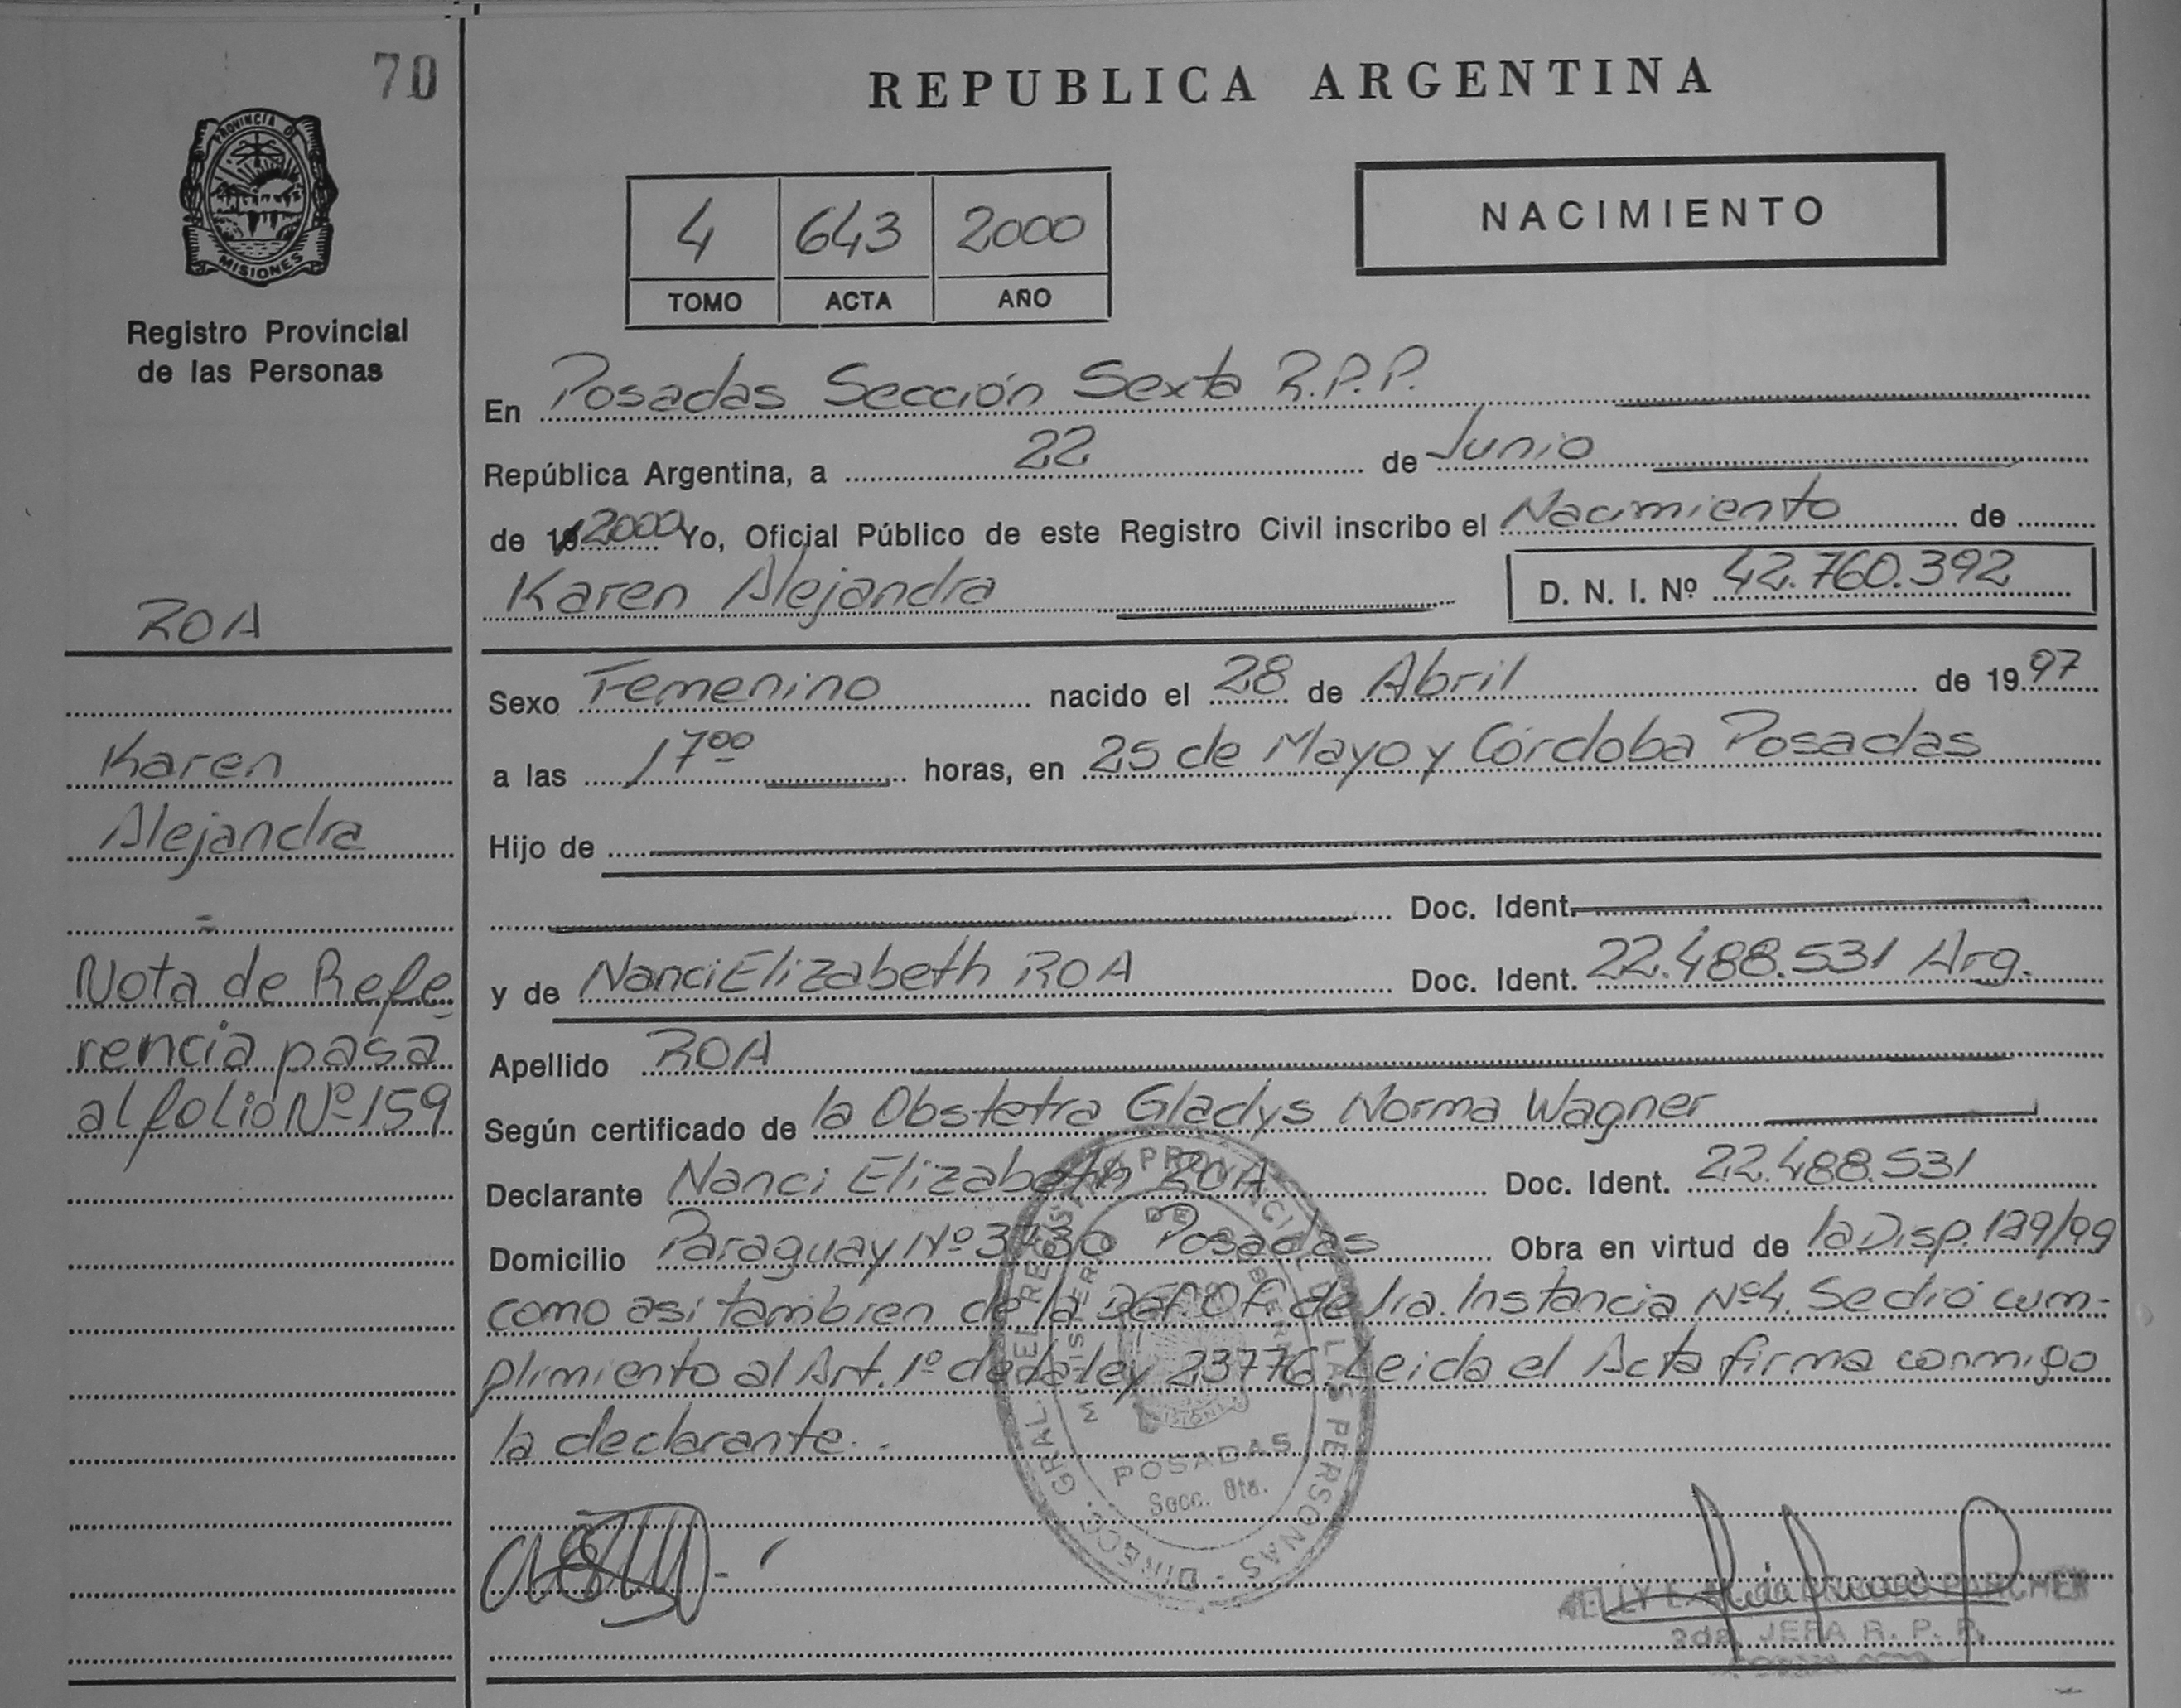 70
PROVINCIA D
MISIONES
Registro Provincial
de las Personas
ROA
Karen
Alejandra
Nota de Refe
rencia pasa
al folio Nº 159
REPUBLICA ARGENTINA
4 643 2000
TOMO ACTA AÑO
NACIMIENTO
En Posadas Sección Sexta R.P.P.
República Argentina, a 22 de Junio
de 19 2000 Yo, Oficial Público de este Registro Civil inscribo el Nacimiento de
Karen Alejandra D. N. I. Nº 42.760.392
Sexo Femenino nacido el 28 de Abril de 19 97
a las 17⁰⁰ horas, en 25 de Mayo y Córdoba Posadas
Hijo de
Doc. Ident.
y de Nanci Elizabeth ROA Doc. Ident. 22.488.531 Arg.
Apellido ROA
Según certificado de la Obstetra Gladys Norma Wagner
Declarante Nanci Elizabeth ROA Doc. Ident. 22.488.531
Domicilio Paraguay Nº Posadas Obra en virtud de la Disp. /99
como asi tambien de la Def. Of. de 1ra. Instancia Nº4. Se dió cum-
plimiento al Art. 1º de la ley 23776. Leida el Acta firma conmigo
la declarante.
DIRECC. GRAL. DEL REGISTRO PROVINCIAL DE LAS PERSONAS
POSADAS
Secc. 6ta.
JEFA R. P. P.